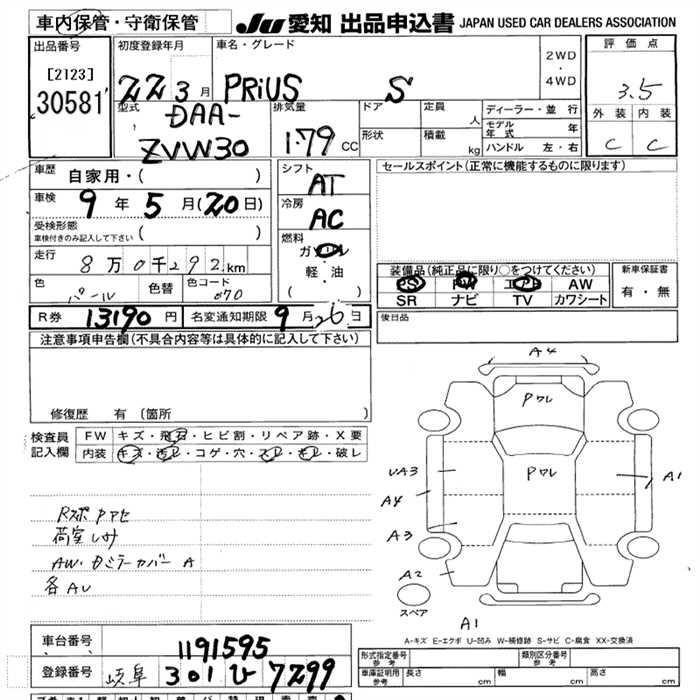 車内保管・守衛保管
JU 愛知 出品申込書 JAPAN USED CAR DEALERS ASSOCIATION
出品番号
[2123]
30581
初度登録年月
22 3 月
車名・グレード
PRiUS S
2WD
・
4WD
評価点
3.5
外装 内装
C C
型式
DAA-
ZVW30
排気量
1.79 CC
ドア
形状
定員 人
積載 kg
ディーラー・並行
モデル年式 年
ハンドル 左・右
車歴 自家用・( )
車検 9 年 5 月(20日)
受検形態
車検付きのみ記入して下さい ( )
走行 8 万 0 千 292 km
色 パール 色替 色コード 070
シフト
AT
冷房
AC
燃料
ガソリン
軽・油
( )
セールスポイント(正常に機能するものに限ります)
装備品(純正品に限り○をつけてください)
PS PW エアB AW
SR ナビ TV カワシート
新車保証書
有・無
R券 13190 円 名変通知期限 9 月 26 日
後日品
注意事項申告欄(不具合内容等は具体的に記入して下さい)
修復歴 有 (箇所
検査員記入欄
FW キズ・飛石・ヒビ割・リペア跡・X要
内装 キズ・汚レ・コゲ・穴・スレ・キレ・破レ
荷室
AW・Dミラーカバー A
各AU
A4
Pワレ
Pワレ
UA3
A4
A3
A2
A1
A1
スペア
A-キズ E-エクボ U-凹み W-補修跡 S-サビ C-腐食 XX-交換済
車台番号 1191595
登録番号 岐阜 301 ひ 7299
形式指定番号 参考
類別区分番号 参考
車庫証明用 参考 長さ cm 幅 cm 高さ cm